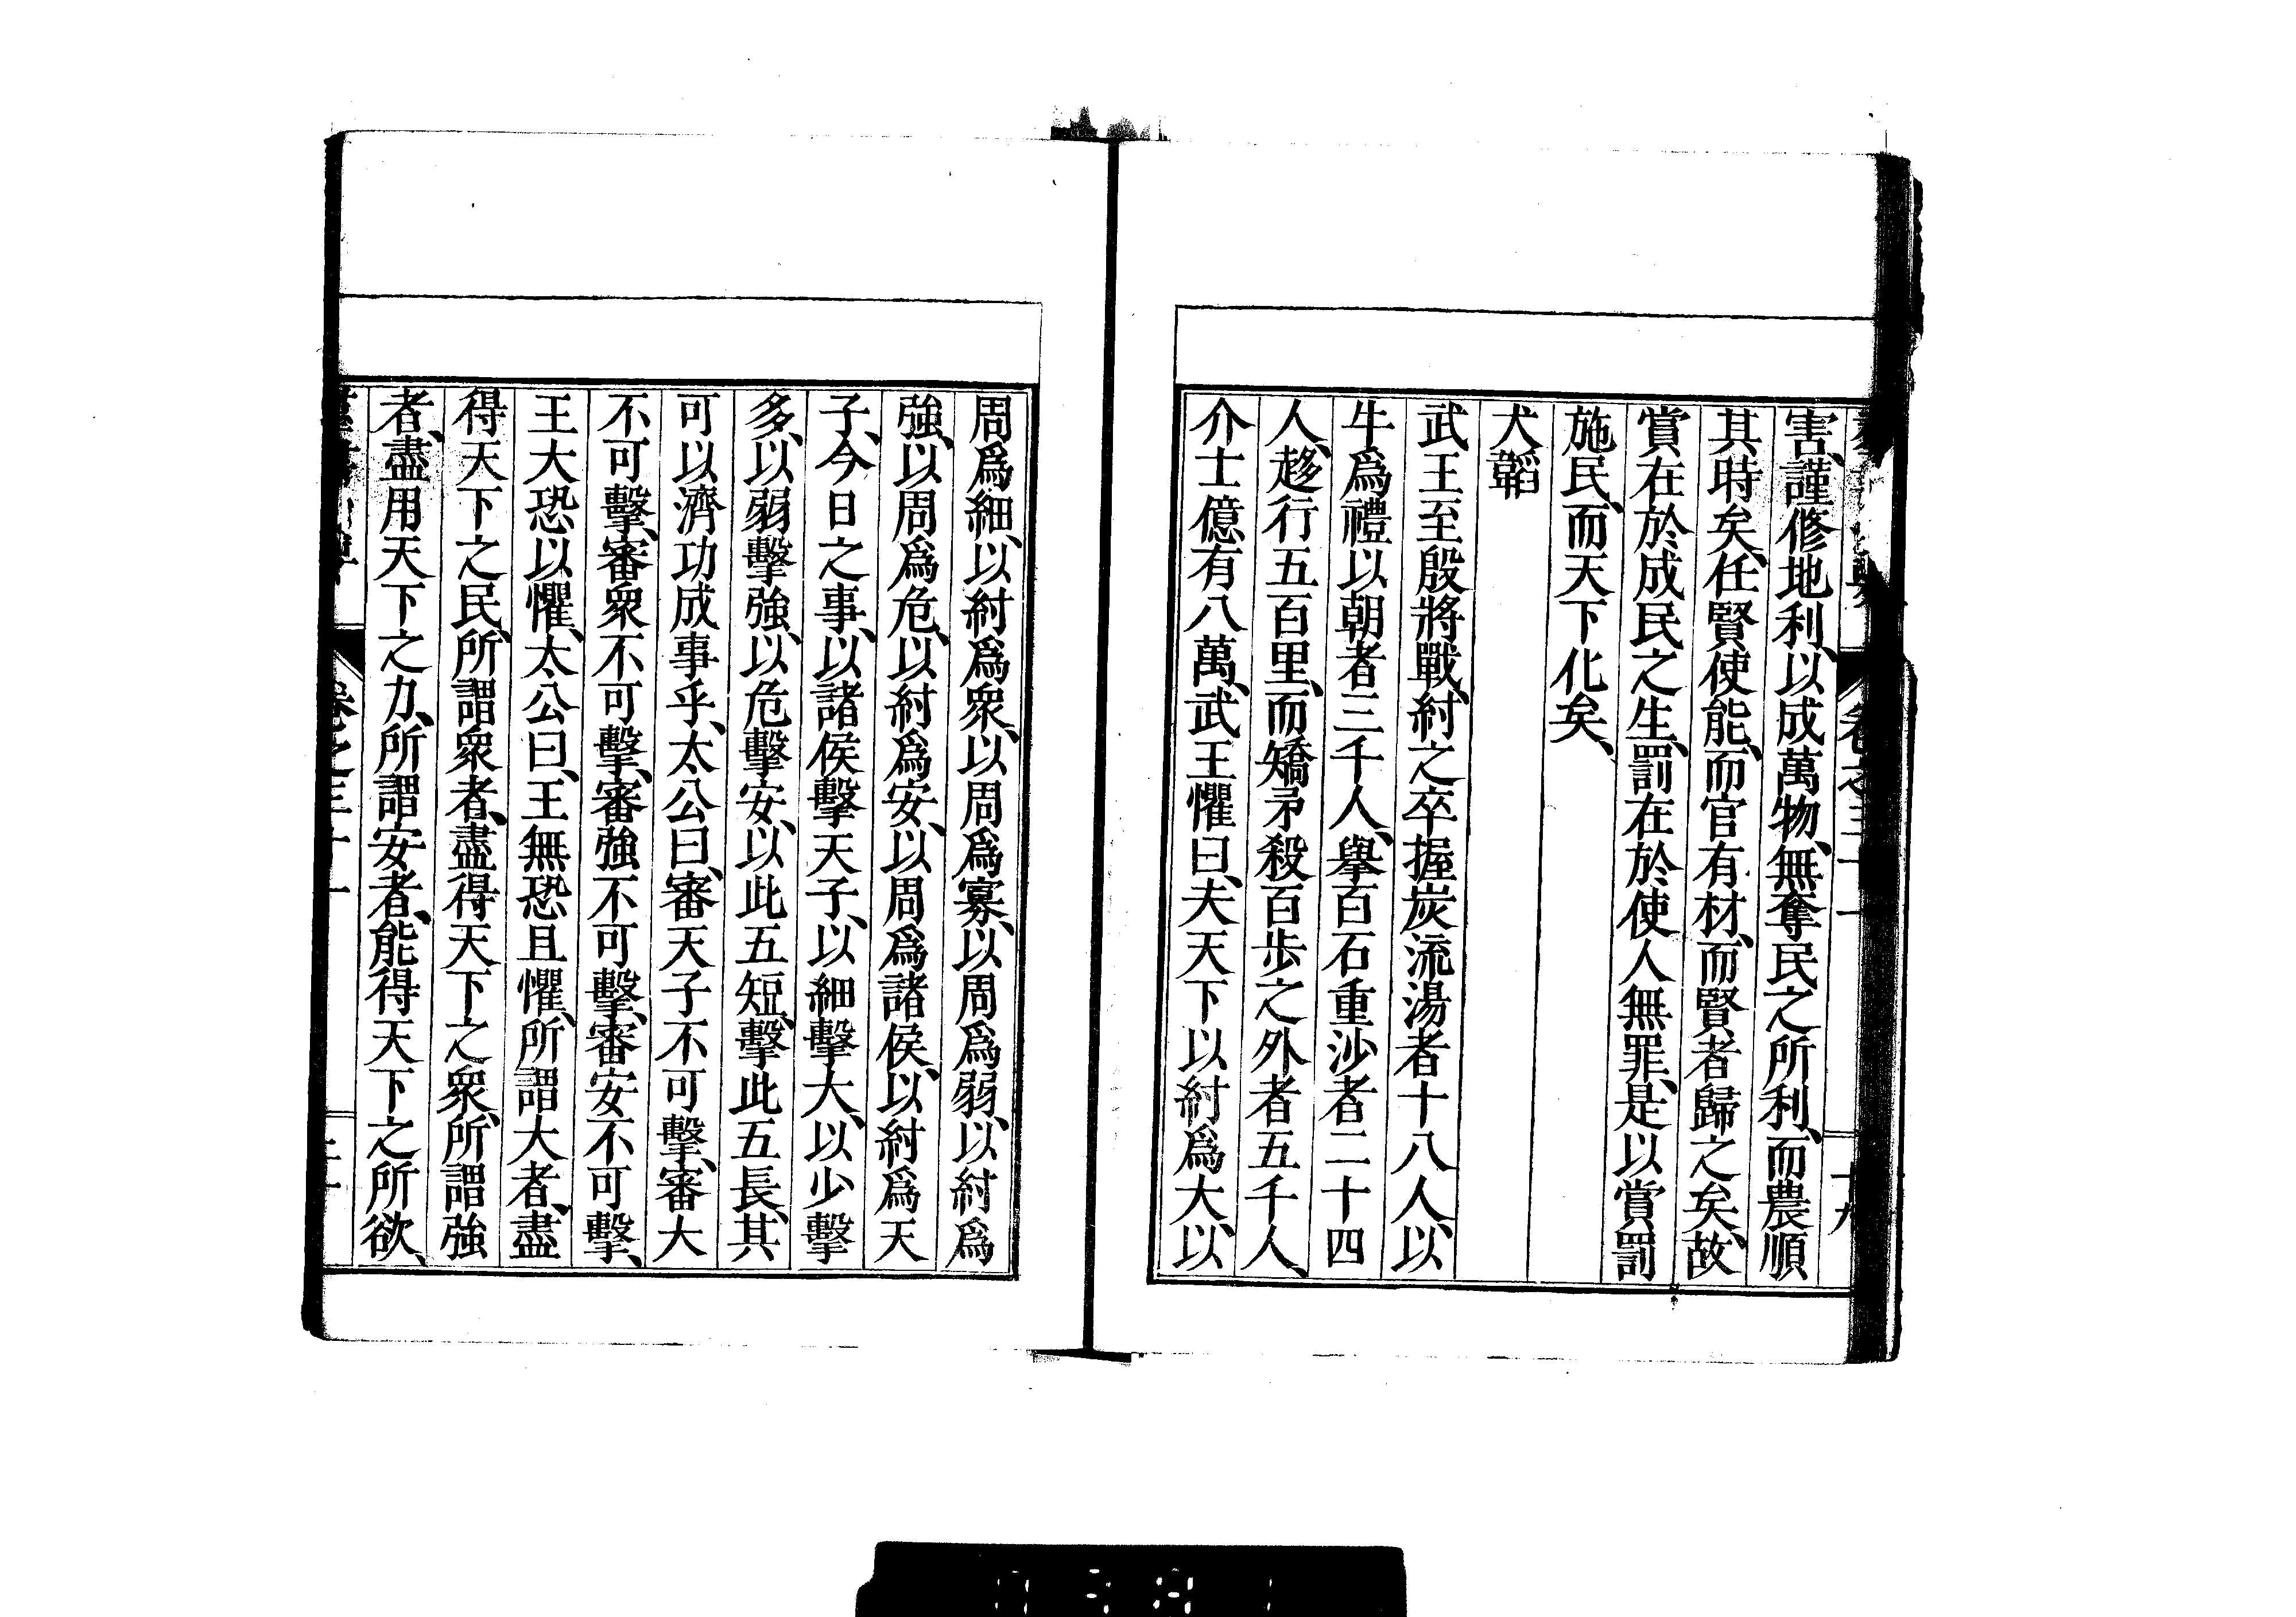 卷之三十一 十九
害、謹修地利、以成萬物、無奪民之所利、而農順
其時矣、任賢使能、而官有材、而賢者歸之矣、故
賞在於成民之生、罰在於使人無罪、是以賞罰
施民、而天下化矣、
犬韜
武王至殷將戰、紂之卒握炭流湯者十八人、以
牛爲禮以朝者三千人、擧百石重沙者二十四
人、趍行五百里、而矯矛殺百步之外者五千人、
介士億有八萬、武王懼曰、夫天下以紂爲大、以
周爲細、以紂爲衆、以周爲寡、以周爲弱、以紂爲
強、以周爲危、以紂爲安、以周爲諸侯、以紂爲天
子、今日之事、以諸侯擊天子、以細擊大、以少擊
多、以弱擊強、以危擊安、以此五短、擊此五長、其
可以濟功成事乎、太公曰、審天子不可擊、審大
不可擊、審衆不可擊、審強不可擊、審安不可擊、
王大恐以懼、太公曰、王無恐且懼、所謂大者、盡
得天下之民、所謂衆者、盡得天下之衆、所謂強
者、盡用天下之力、所謂安者、能得天下之所欲、
卷之三十一